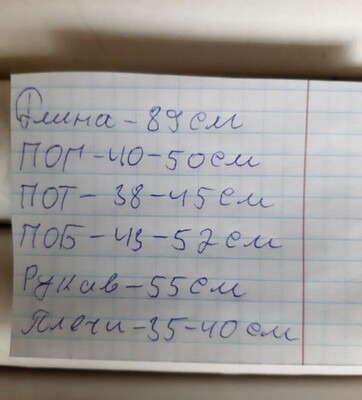 Длина - 89 см
ПОГ - 40 - 50 см
ПОТ - 38 - 45 см
ПОБ - 43 - 52 см
Рукав - 55 см
Плечи - 35 - 40 см